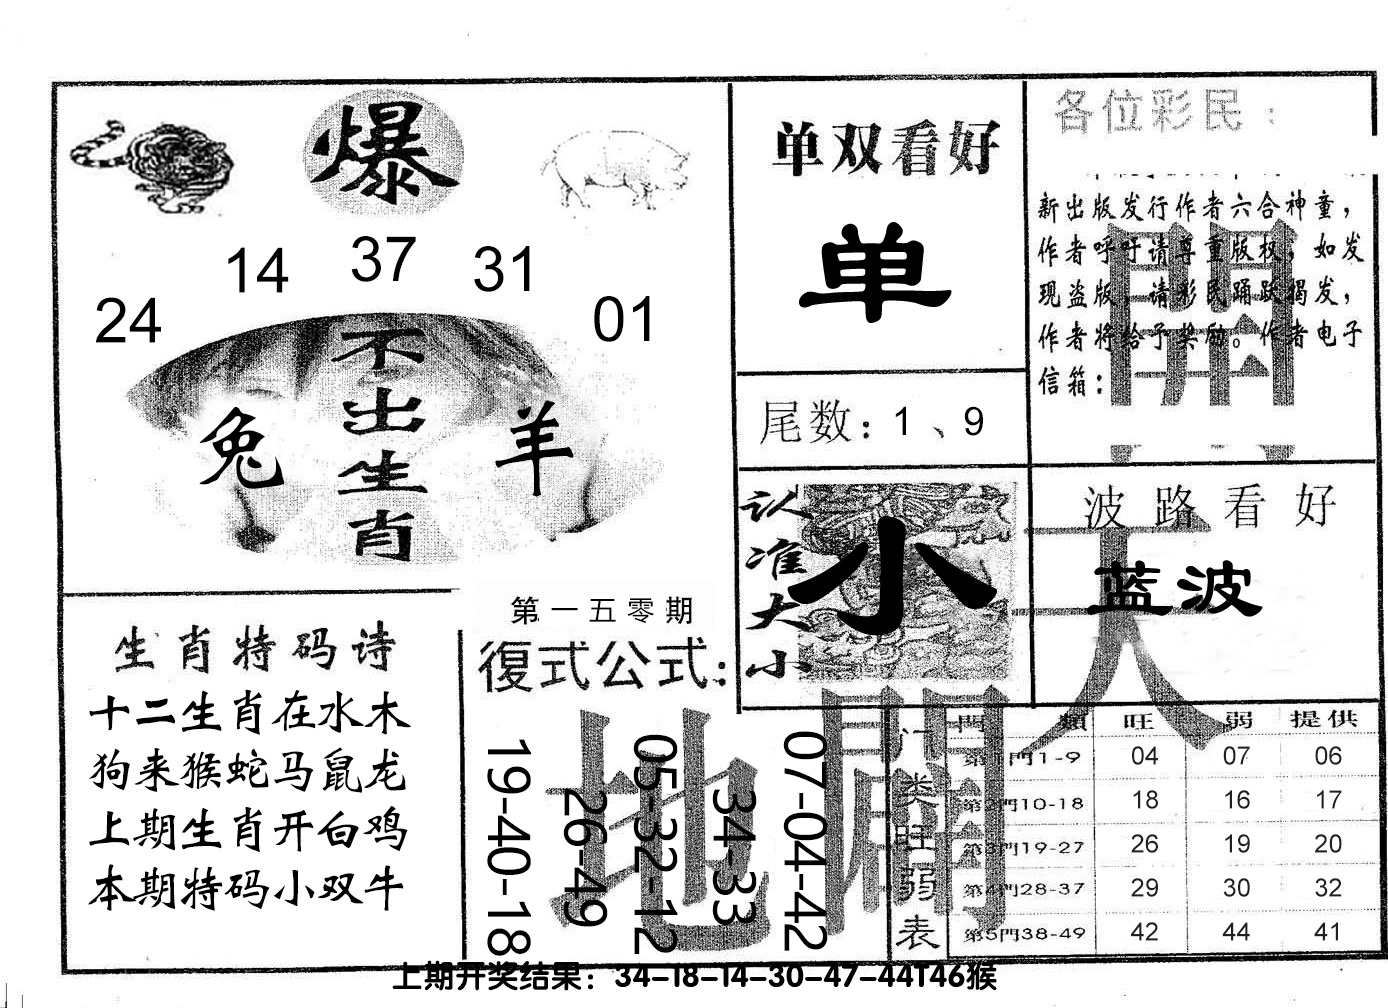 爆
24 14 37 31 01
不出生肖
兔 羊
单双看好
单
尾数：1、9
各位彩民：
新出版发行作者六合神童，
作者呼吁请尊重版权，如发
现盗版，请彩民踊跃揭发，
作者将给予奖励。作者电子
信箱：
開
认准大小
小
波路看好
蓝波
天
生肖特码诗
十二生肖在水木
狗来猴蛇马鼠龙
上期生肖开白鸡
本期特码小双牛
第一五零期
復式公式：
19-40-18
26-49
05-32-12
34-33
07-04-42
地
闢
门类旺弱表
門類 旺 弱 提供
第1門1-9 04 07 06
第2門10-18 18 16 17
第3門19-27 26 19 20
第4門28-37 29 30 32
第5門38-49 42 44 41
上期开奖结果：34-18-14-30-47-44T46猴